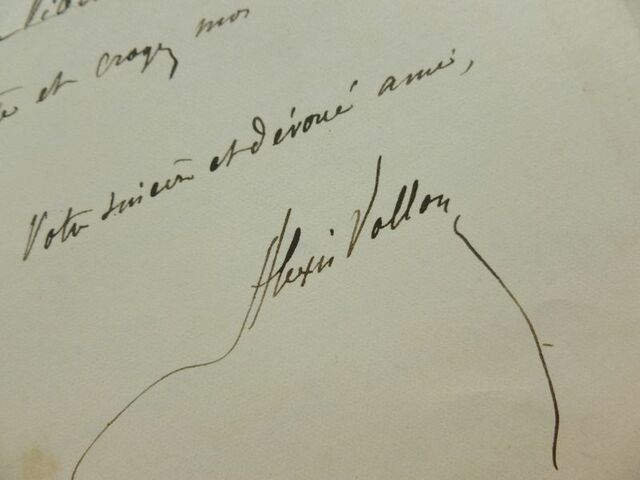 et croyez moi
Votre sincère et dévoué ami,
Alexis Vollon